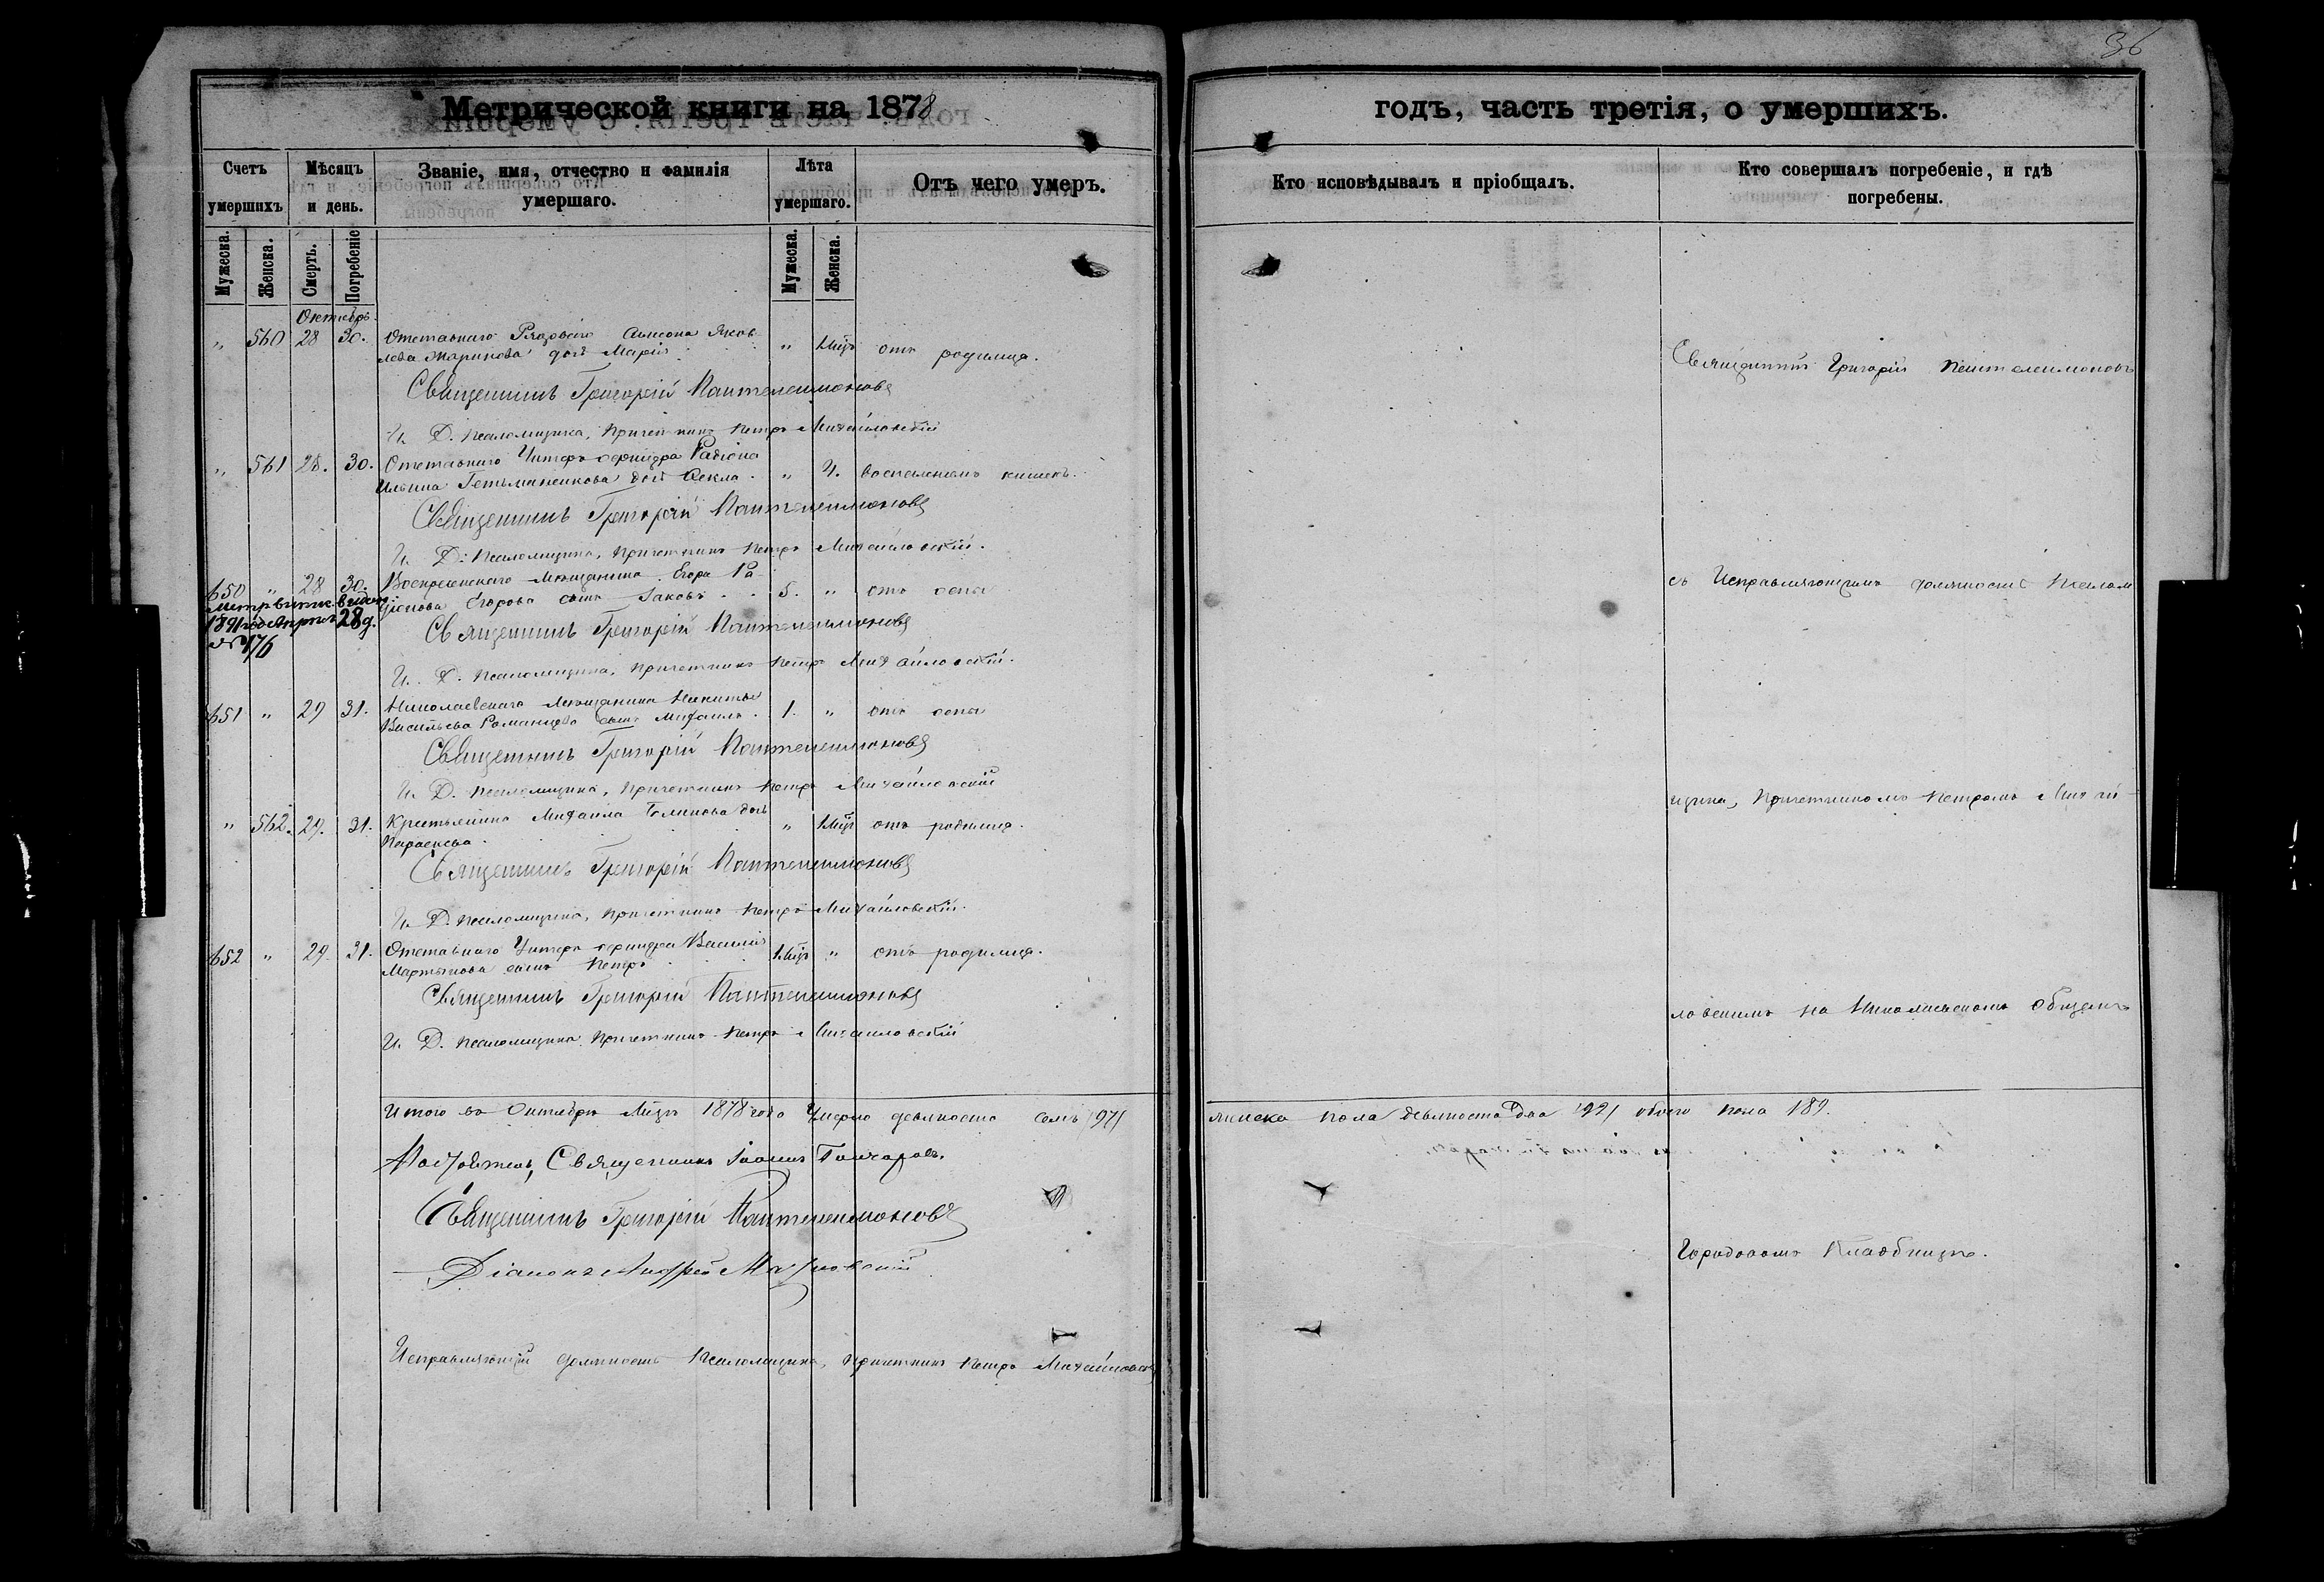 36
Метрической книги на 1878
годъ, часть третія, о умершихъ.
Счетъ умершихъ
Мѣсяцъ и день.
Званіе, имя, отчество и фамилія умершаго.
Лѣта умершаго.
Отъ чего умеръ.
Кто исповѣдывалъ и пріобщалъ.
Кто совершалъ погребеніе, и гдѣ погребены.
Мужеска.
Женска.
Смерть.
Погребеніе
Мужеска.
Женска.
Октябрь.
" 560 28 30. Отставнаго Рядоваго Яков-
лева дочь Марія " 1 мѣс. отъ родимца.
Священникъ Григорій Пантелеимоновъ
И. Д. Псаломщика, Причетникъ Петръ Михайловскій
" 561 28. 30. Отставнаго Унтеръ-офицера Радіона
Ильина дочь Ѳекла. " воспаленіемъ кишекъ.
Священникъ Григорій Пантелеимоновъ
И. Д. Псаломщика, Причетникъ Петръ Михайловскій.
650 " 28 30. Мѣщанина Егора Ра-
діонова Егорова сынъ Іаковъ 5. " отъ оспы
1891 года Апрѣля 28 д.
№ 176
Священникъ Григорій Пантелеимоновъ
И. Д. Псаломщика, Причетникъ Петръ Михайловскій.
651 " 29 31. Николаевскаго Мѣщанина Никиты
Васильева Романцова сынъ Михаилъ. 1. " отъ оспы
Священникъ Григорій Пантелеимоновъ
И. Д. Псаломщика, Причетникъ Петръ Михайловскій
" 562. 29. 31. Крестьянина Михаила дочь
Параскева. " 1 мѣс. отъ родимца.
Священникъ Григорій Пантелеимоновъ
И. Д. Псаломщика, Причетникъ Петръ Михайловскій.
652 " 29. 31. Отставнаго Унтеръ офицера Василія
Мартынова сынъ Петръ 1 мѣс. " отъ родимца.
Священникъ Григорій Пантелеимоновъ
И. Д. Псаломщика Причетникъ Петръ Михайловскій
Итого въ Октябрѣ Мѣсяцѣ 1878 года Умерло девяносто семь /97/
Настоятель, Священникъ Іоаннъ Гончаровъ.
Священникъ Григорій Пантелеимоновъ
Діаконъ Андрей
Исправляющій должность Псаломщика, Причетникъ Петръ Михайловскій
Священникъ Григорій Пантелеимоновъ
съ Исправляющимъ должность Псалом
щика, Причетникомъ Петромъ Михай-
ловскимъ на Николаевскомъ Общемъ
женска пола девяносто два /92/ обоего пола 189.
Городовомъ Кладбищѣ.